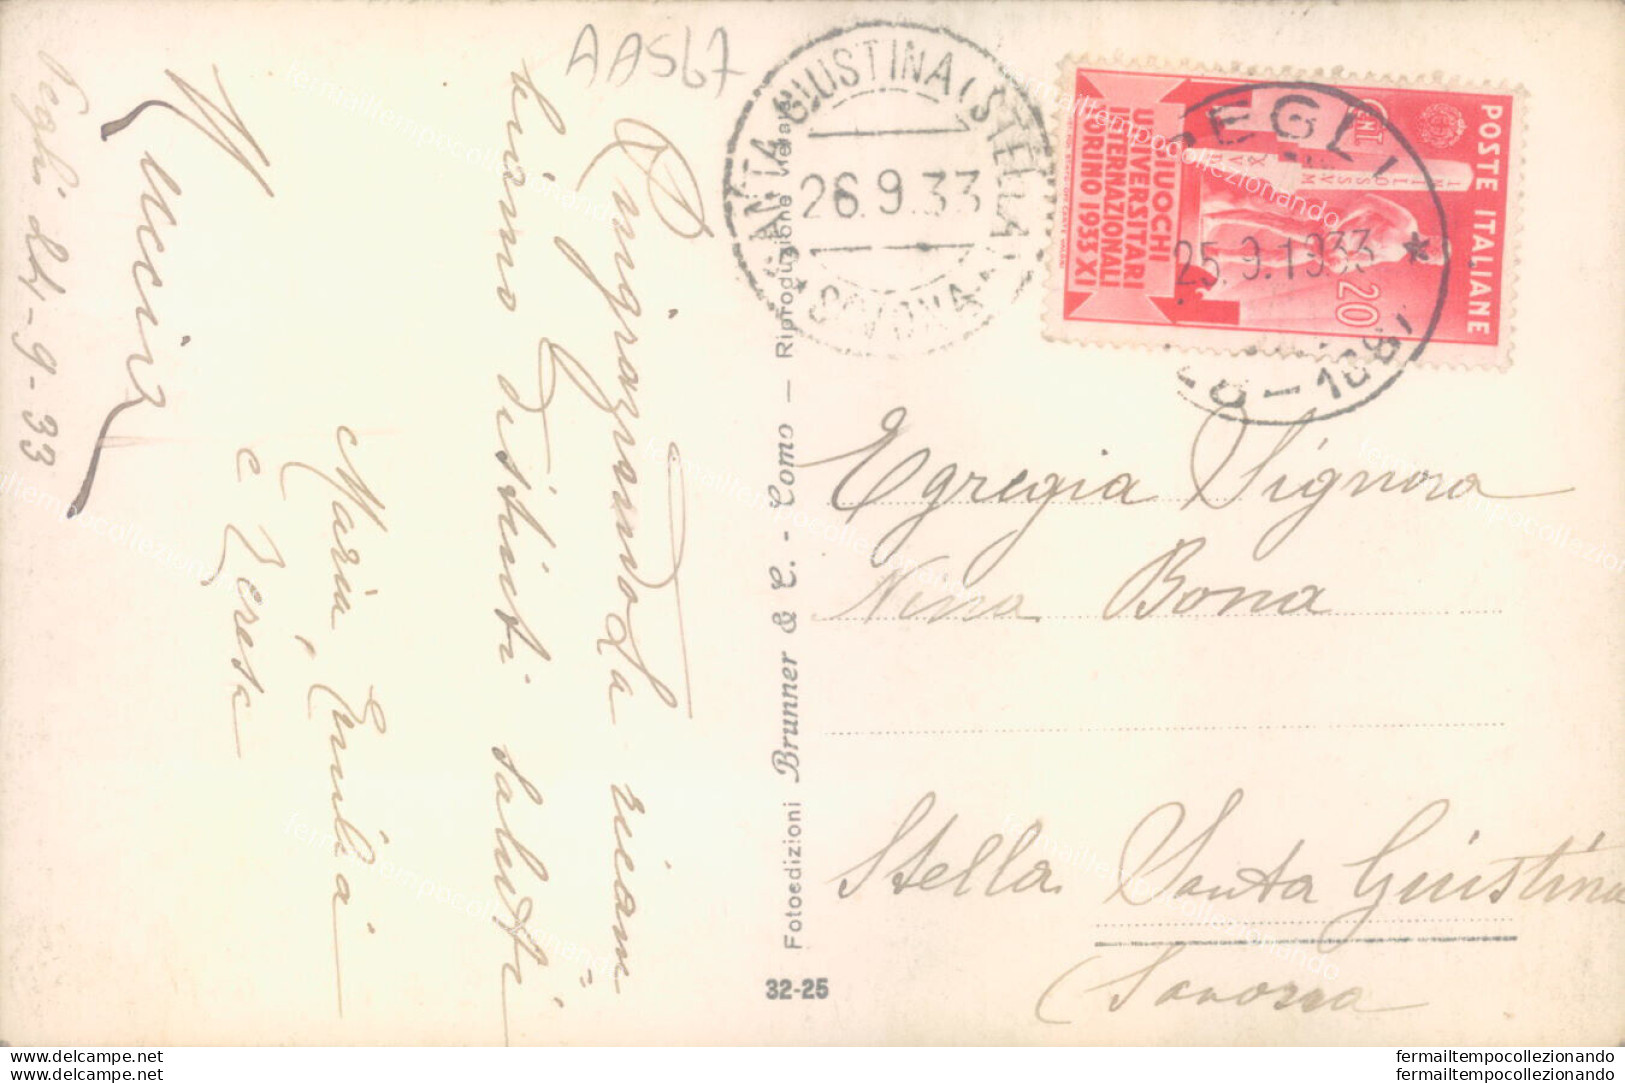 AA567
Ringraziandola ricam=
biamo distinti saluti
Maria, Emilia
e Teresa
Peghi 24-9-33
SANTA GIUSTINA (STELLA)
26.9.33
SAVONA
PEGLI
25.9.1933
POSTE ITALIANE
CENT. 20
GIUOCHI
UNIVERSITARI
INTERNAZIONALI
TORINO 1933 XI
Egregia Signora
Nina Bona
Stella Santa Giustina
(Savona
Fotoedizioni Brunner & C. - Como — Riproduzione Vietata
32-25
fermailtempocollezionando
fermailtempocollezionando
www.delcampe.net
www.delcampe.net
fermailtempocollezionando
fermailtempocollezionando